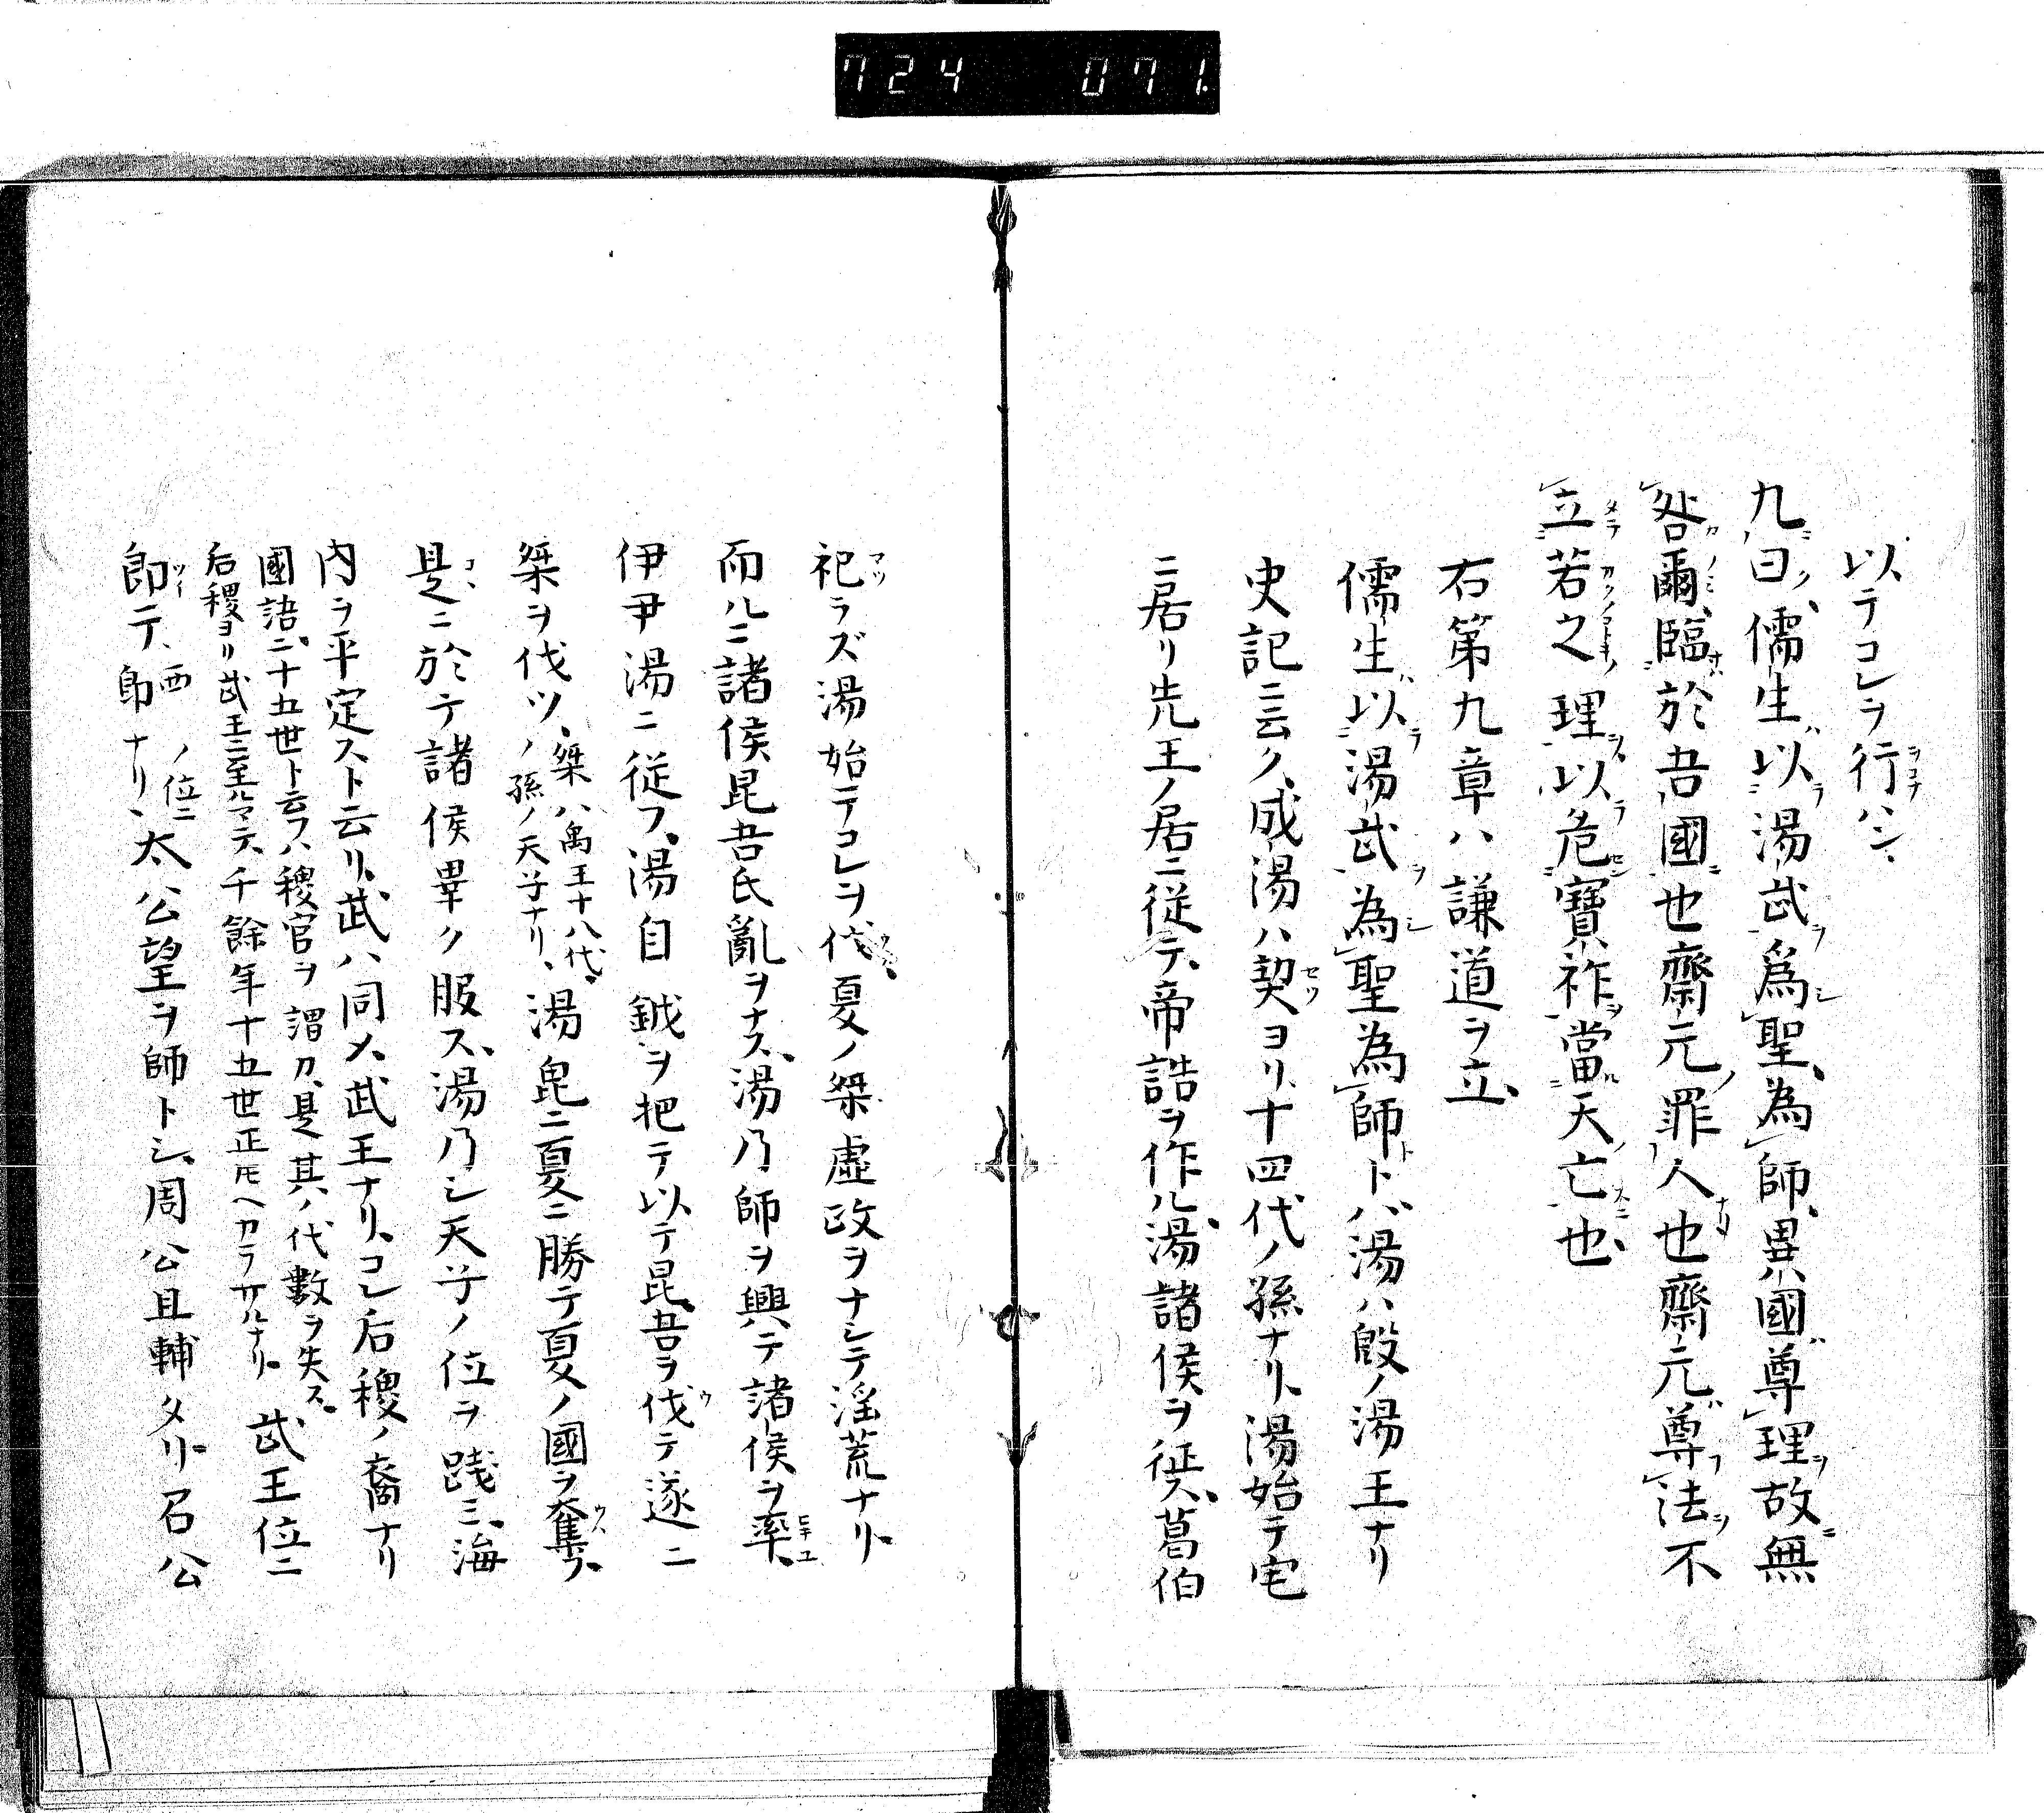 724 071.
以テコレヲ行ハシ、
九曰儒生以湯武為聖、為師、異國尊理故無
咎爾、臨於吾國也齋元罪人也齋元尊法不
立若之理以危寶祚當天亡也、
右第九章ハ謙道ヲ立、
儒生以湯武為聖為師トハ湯ハ殷ノ湯王ナリ
史記ニ云ク、成湯ハ契ヨリ十四代ノ孫ナリ、湯始テ宅
ニ居リ先王ノ居ニ從テ、帝誥ヲ作ル、湯諸侯ヲ征ス、葛伯
祀ラズ湯始テコレヲ伐、夏ノ桀虛政ヲナシテ淫荒ナリ、
而ルニ諸侯昆吾氏亂ヲナス、湯乃師ヲ興テ諸侯ヲ率、
伊尹湯ニ從フ、湯自鉞ヲ把テ以テ昆吾ヲ伐テ遂ニ
桀ヲ伐ツ、桀ハ禹王十八代、
ノ孫ノ天子ナリ、湯既ニ夏ニ勝テ夏ノ國ヲ奪フ、
是ニ於テ諸侯畢ク服ス、湯乃シ天子ノ位ヲ踐ミ、海
内ヲ平定スト云リ、武ハ同メ武王ナリ、コレ后稷ノ裔ナリ
國語ニ十五世ト云フハ稷官ヲ謂カ、是其ノ代數ヲ失ス、
后稷ヨリ武王ニ至ルマテ、千餘年十五世正モヘカラサルナリ、武王位ニ
即テ、西ノ位ニ即ナリ、太公望ヲ師トシ、周公旦輔タリ、召公